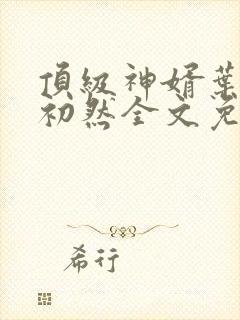 頂級神婿葉
初然全文免
希行